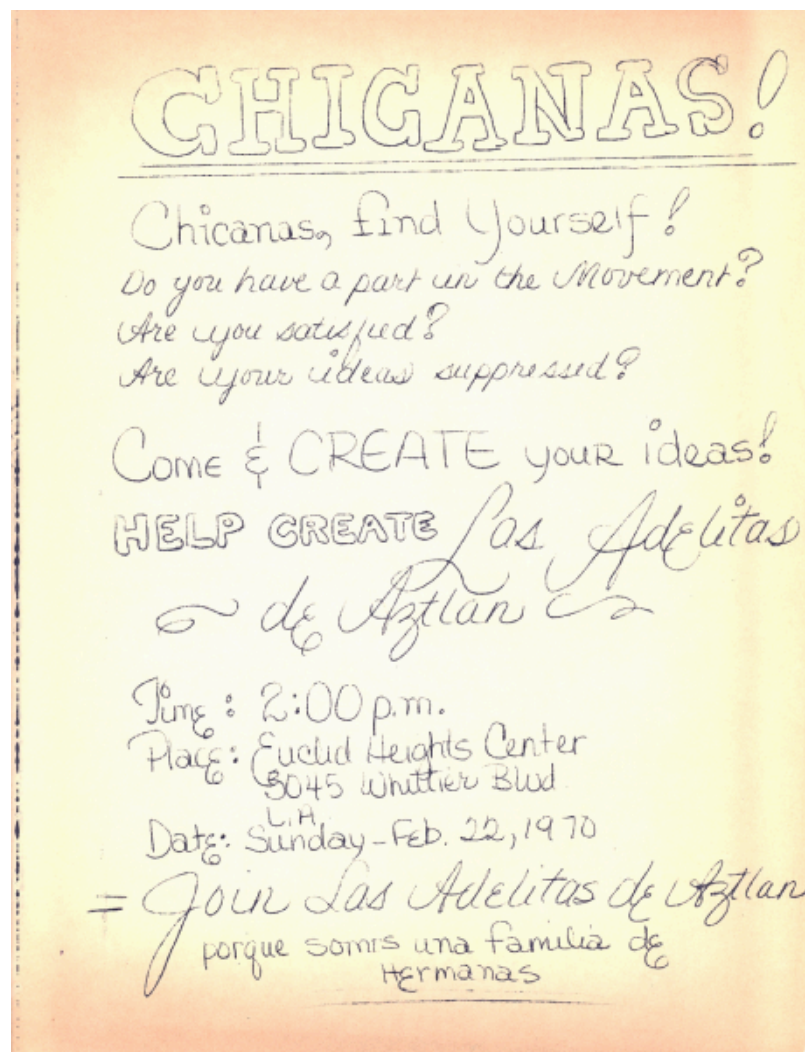 CHICANAS!
Chicanas, find Yourself!
Do you have a part in the Movement?
Are you satisfied?
Are your ideas suppressed?
Come & CREATE your ideas!
HELP CREATE Las Adelitas
de Aztlan
Time: 2:00 p.m.
Place: Euclid Heights Center
3045 Whittier Blvd
L.A.
Date: Sunday - Feb. 22, 1970
= Join Las Adelitas de Aztlan
porque somos una familia de
Hermanas